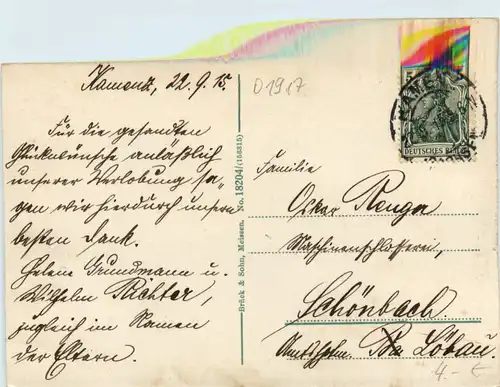 Kamenz, 22.9.15.
Für die gesandten
Glückwünsche anläßlich
unserer Verlobung sa-
gen wir hierdurch unsern
besten Dank.
Helene Grundmann u.
Wilhelm Richter,
zugleich im Namen
der Eltern.
Brück & Sohn, Meissen. No. 18204/(116315)
D1917
5
KAMENZ
DEUTSCHES REICH
Familie
Oskar Renga
Maschinenschlosserei,
Schönbach
Amtshptm. Löbau.
4.- €